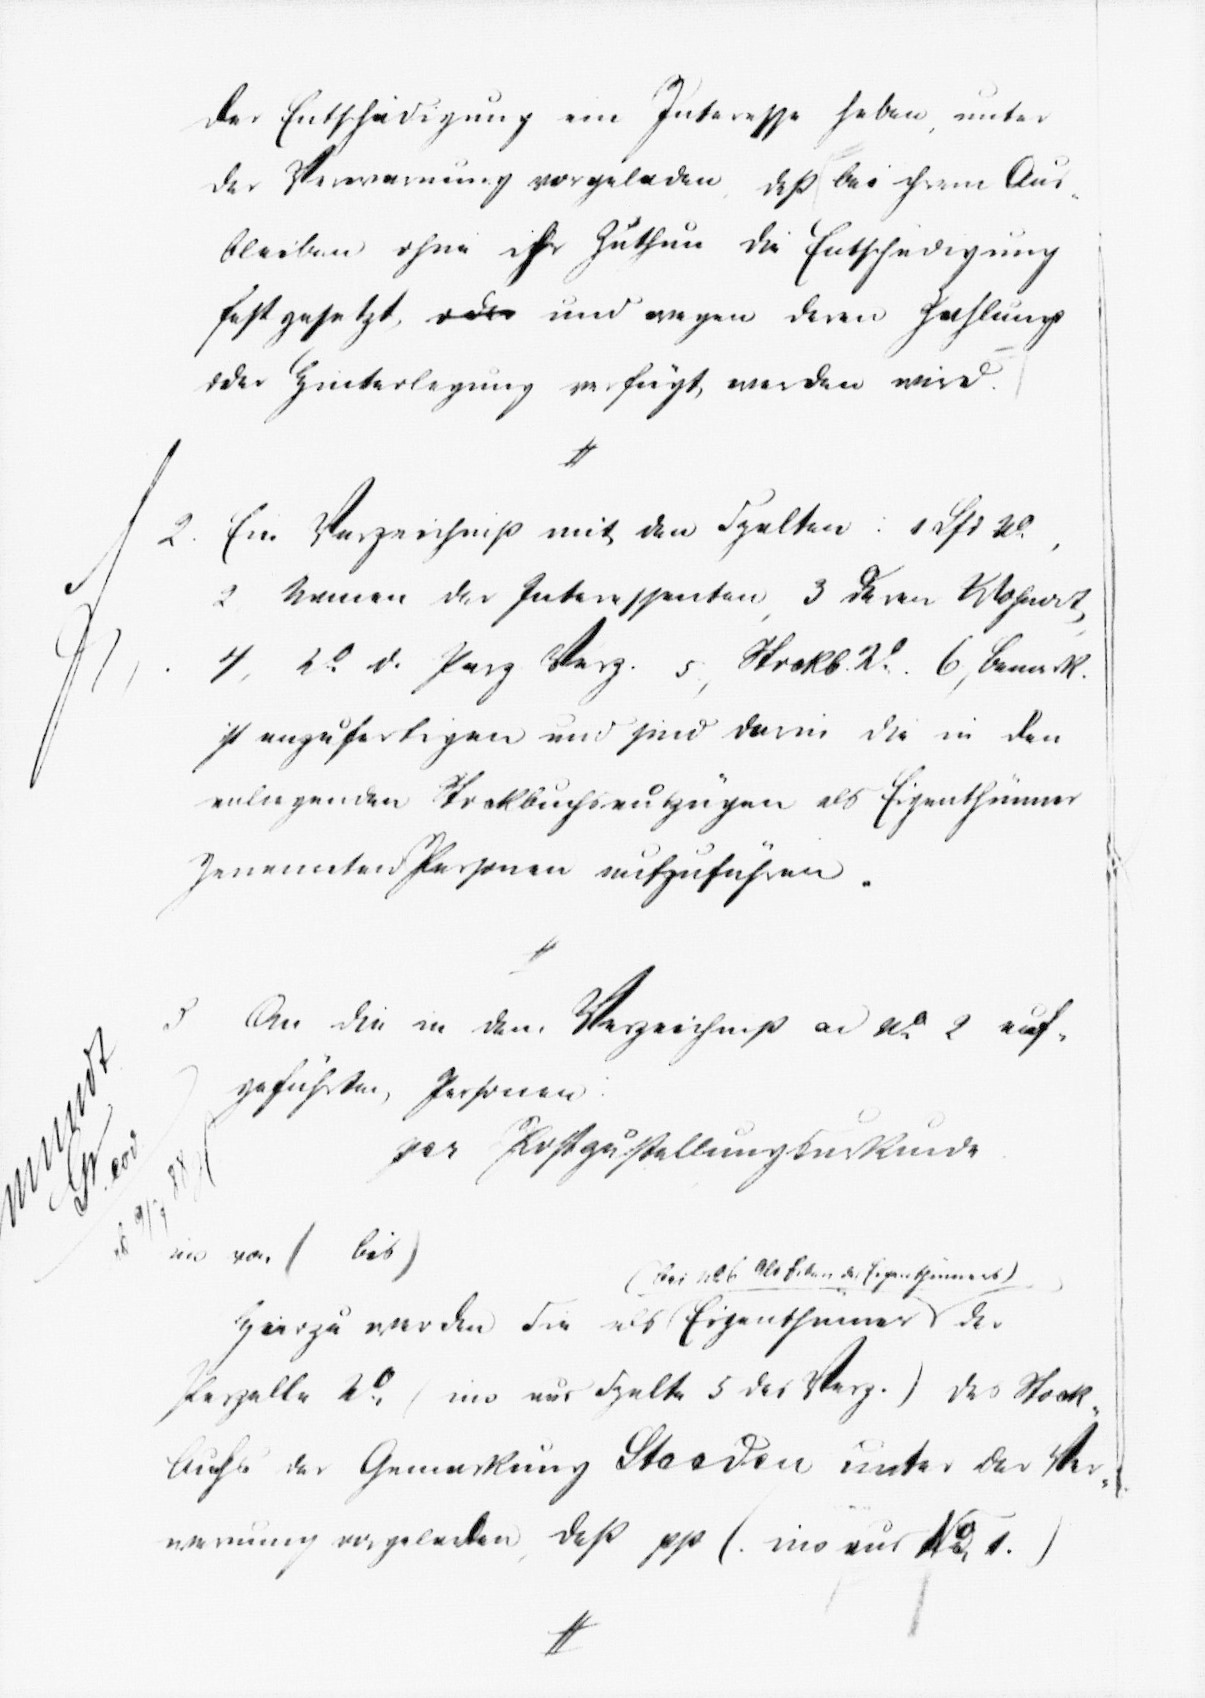 der Entschädigung ein Interesse haben, unter
der Verwarnung vorgeladen, daß bei ihrem Aus-
bleiben ohne ihr Zuthun die Entschädigung
festgesetzt, oder und wegen deren Zahlung
oder Hinterlegung verfügt werden wird.
2. Ein Verzeichniß mit den Spalten: 1 Lfd No,
2 Namen der Interessenten, 3 deren Wohnort,
4, No d. Parz. Verz. 5, Stockb. No. 6, Bemerk.
ist anzufertigen und sind darin die in den
anliegenden Stockbuchsauszügen als Eigenthümer
genannten Personen aufzuführen.
3 An die in dem Verzeichniß ad No 2 auf-
geführten Personen:
per Postzustellungsurkunde
mundt
ins vor. ( bis)
(bei als Erben des Eigenthümers)
Hierzu werden Sie als Eigenthümer der
Parzelle No. (ins aus Spalte 5 des Verz.) des Stock-
buchs der Gemarkung Steeden unter der Ver-
warnung vorgeladen, daß pp (. ins aus No. 1.)